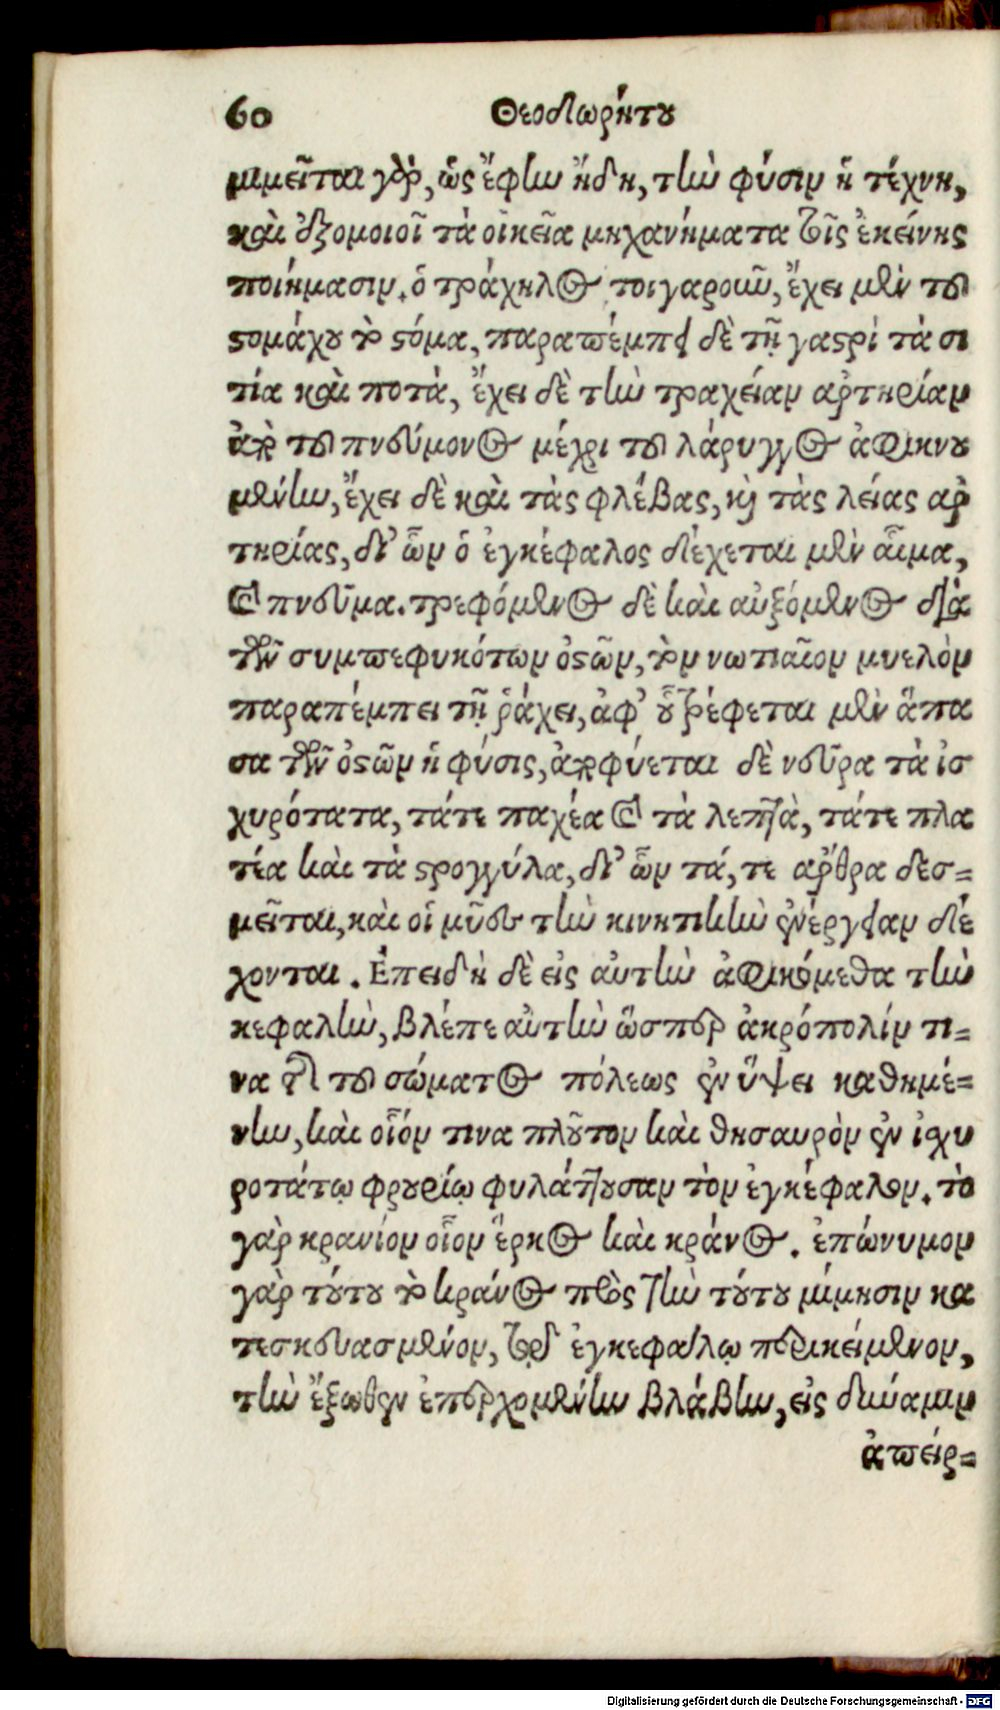 60 Θεοδωρήτου
μιμεῖται γὰρ, ὡς ἔφην ἤδη, τὴν φύσιν ἡ τέχνη,
καὶ ἐξομοιοῖ τὰ οἰκεῖα μηχανήματα τοῖς ἐκείνης
ποιήμασιν. ὁ τράχηλος τοιγαροῦν, ἔχει μὲν τοῦ
στομάχου τὸ στόμα, παραπέμπει δὲ τῇ γαστρὶ τὰ σι
τία καὶ ποτὰ, ἔχει δὲ τὴν τραχείαν ἀρτηρίαν
ἀπὸ τοῦ πνεύμονος μέχρι τοῦ λάρυγγος ἀφικνου
μένην, ἔχει δὲ καὶ τὰς φλέβας, καὶ τὰς λείας ἀρ
τηρίας, δι' ὧν ὁ ἐγκέφαλος δέχεται μὲν αἷμα,
καὶ πνεῦμα. τρεφόμενος δὲ καὶ αὐξόμενος διὰ
τῶν συμπεφυκότων ὀστῶν, τὸν νωτιαῖον μυελὸν
παραπέμπει τῇ ῥάχει, ἀφ' οὗ τρέφεται μὲν ἅπα
σα τῶν ὀστῶν ἡ φύσις, ἀποφύεται δὲ νεῦρα τὰ ἰσ
χυρότατα, τάτε παχέα καὶ τὰ λεπτὰ, τάτε πλα
τέα καὶ τὰ στρογγύλα, δι' ὧν τά, τε ἄρθρα δεσ-
μεῖται, καὶ οἱ μῦες τὴν κινητικὴν ἐνέργειαν δέ
χονται. Ἐπειδὴ δὲ εἰς αὐτὴν ἀφικόμεθα τὴν
κεφαλὴν, βλέπε αὐτὴν ὥσπερ ἀκρόπολίν τι-
να τῆς τοῦ σώματος πόλεως ἐν ὕψει καθημέ-
νην, καὶ οἷόν τινα πλοῦτον καὶ θησαυρὸν ἐν ἰσχυ
ροτάτῳ φρουρίῳ φυλάττουσαν τὸν ἐγκέφαλον. τὸ
γὰρ κρανίον οἷον ἕρκος καὶ κράνος. ἐπώνυμον
γὰρ τούτου τὸ κράνος πρὸς τὴν τούτου μίμησιν κα
τεσκευασμένον, τῷ δ' ἐγκεφάλῳ περικείμενον,
τὴν ἔξωθεν ἐπερχομένην βλάβην, εἰς δύναμιν
ἀπείρ-
Digitalisierung gefördert durch die Deutsche Forschungsgemeinschaft - DFG